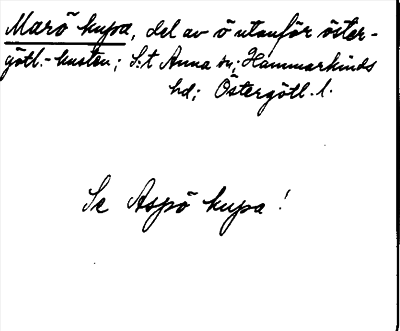 Marö kupa, del av ö utanför öster-
götl.-kusten; S:t Anna sn; Hammarkinds
hd; Östergötl. l.
Se Aspö kupa!